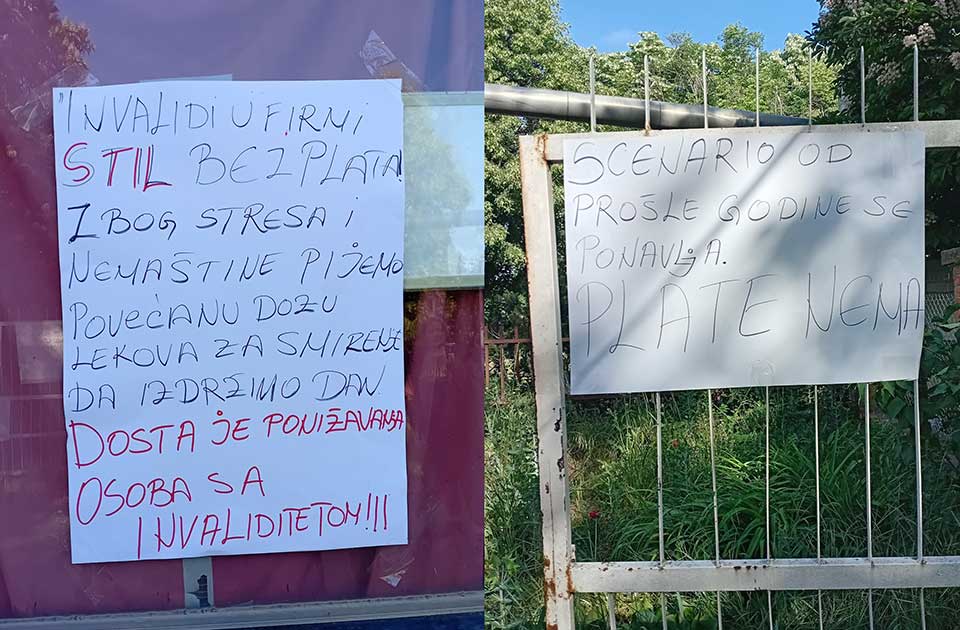 "INVALIDI U FIRMI
STIL BEZ PLATA!
ZBOG STRESA I
NEMAŠTINE PIJEMO
POVEĆANU DOZU
LEKOVA ZA SMIRENJE
DA IZDRZIMO DAN.
DOSTA JE PONIŽAVANJA
OSOBA SA
INVALIDITETOM!!!
SCENARIO OD
PROŠLE GODINE SE
PONAVLJA.
PLATE NEMA